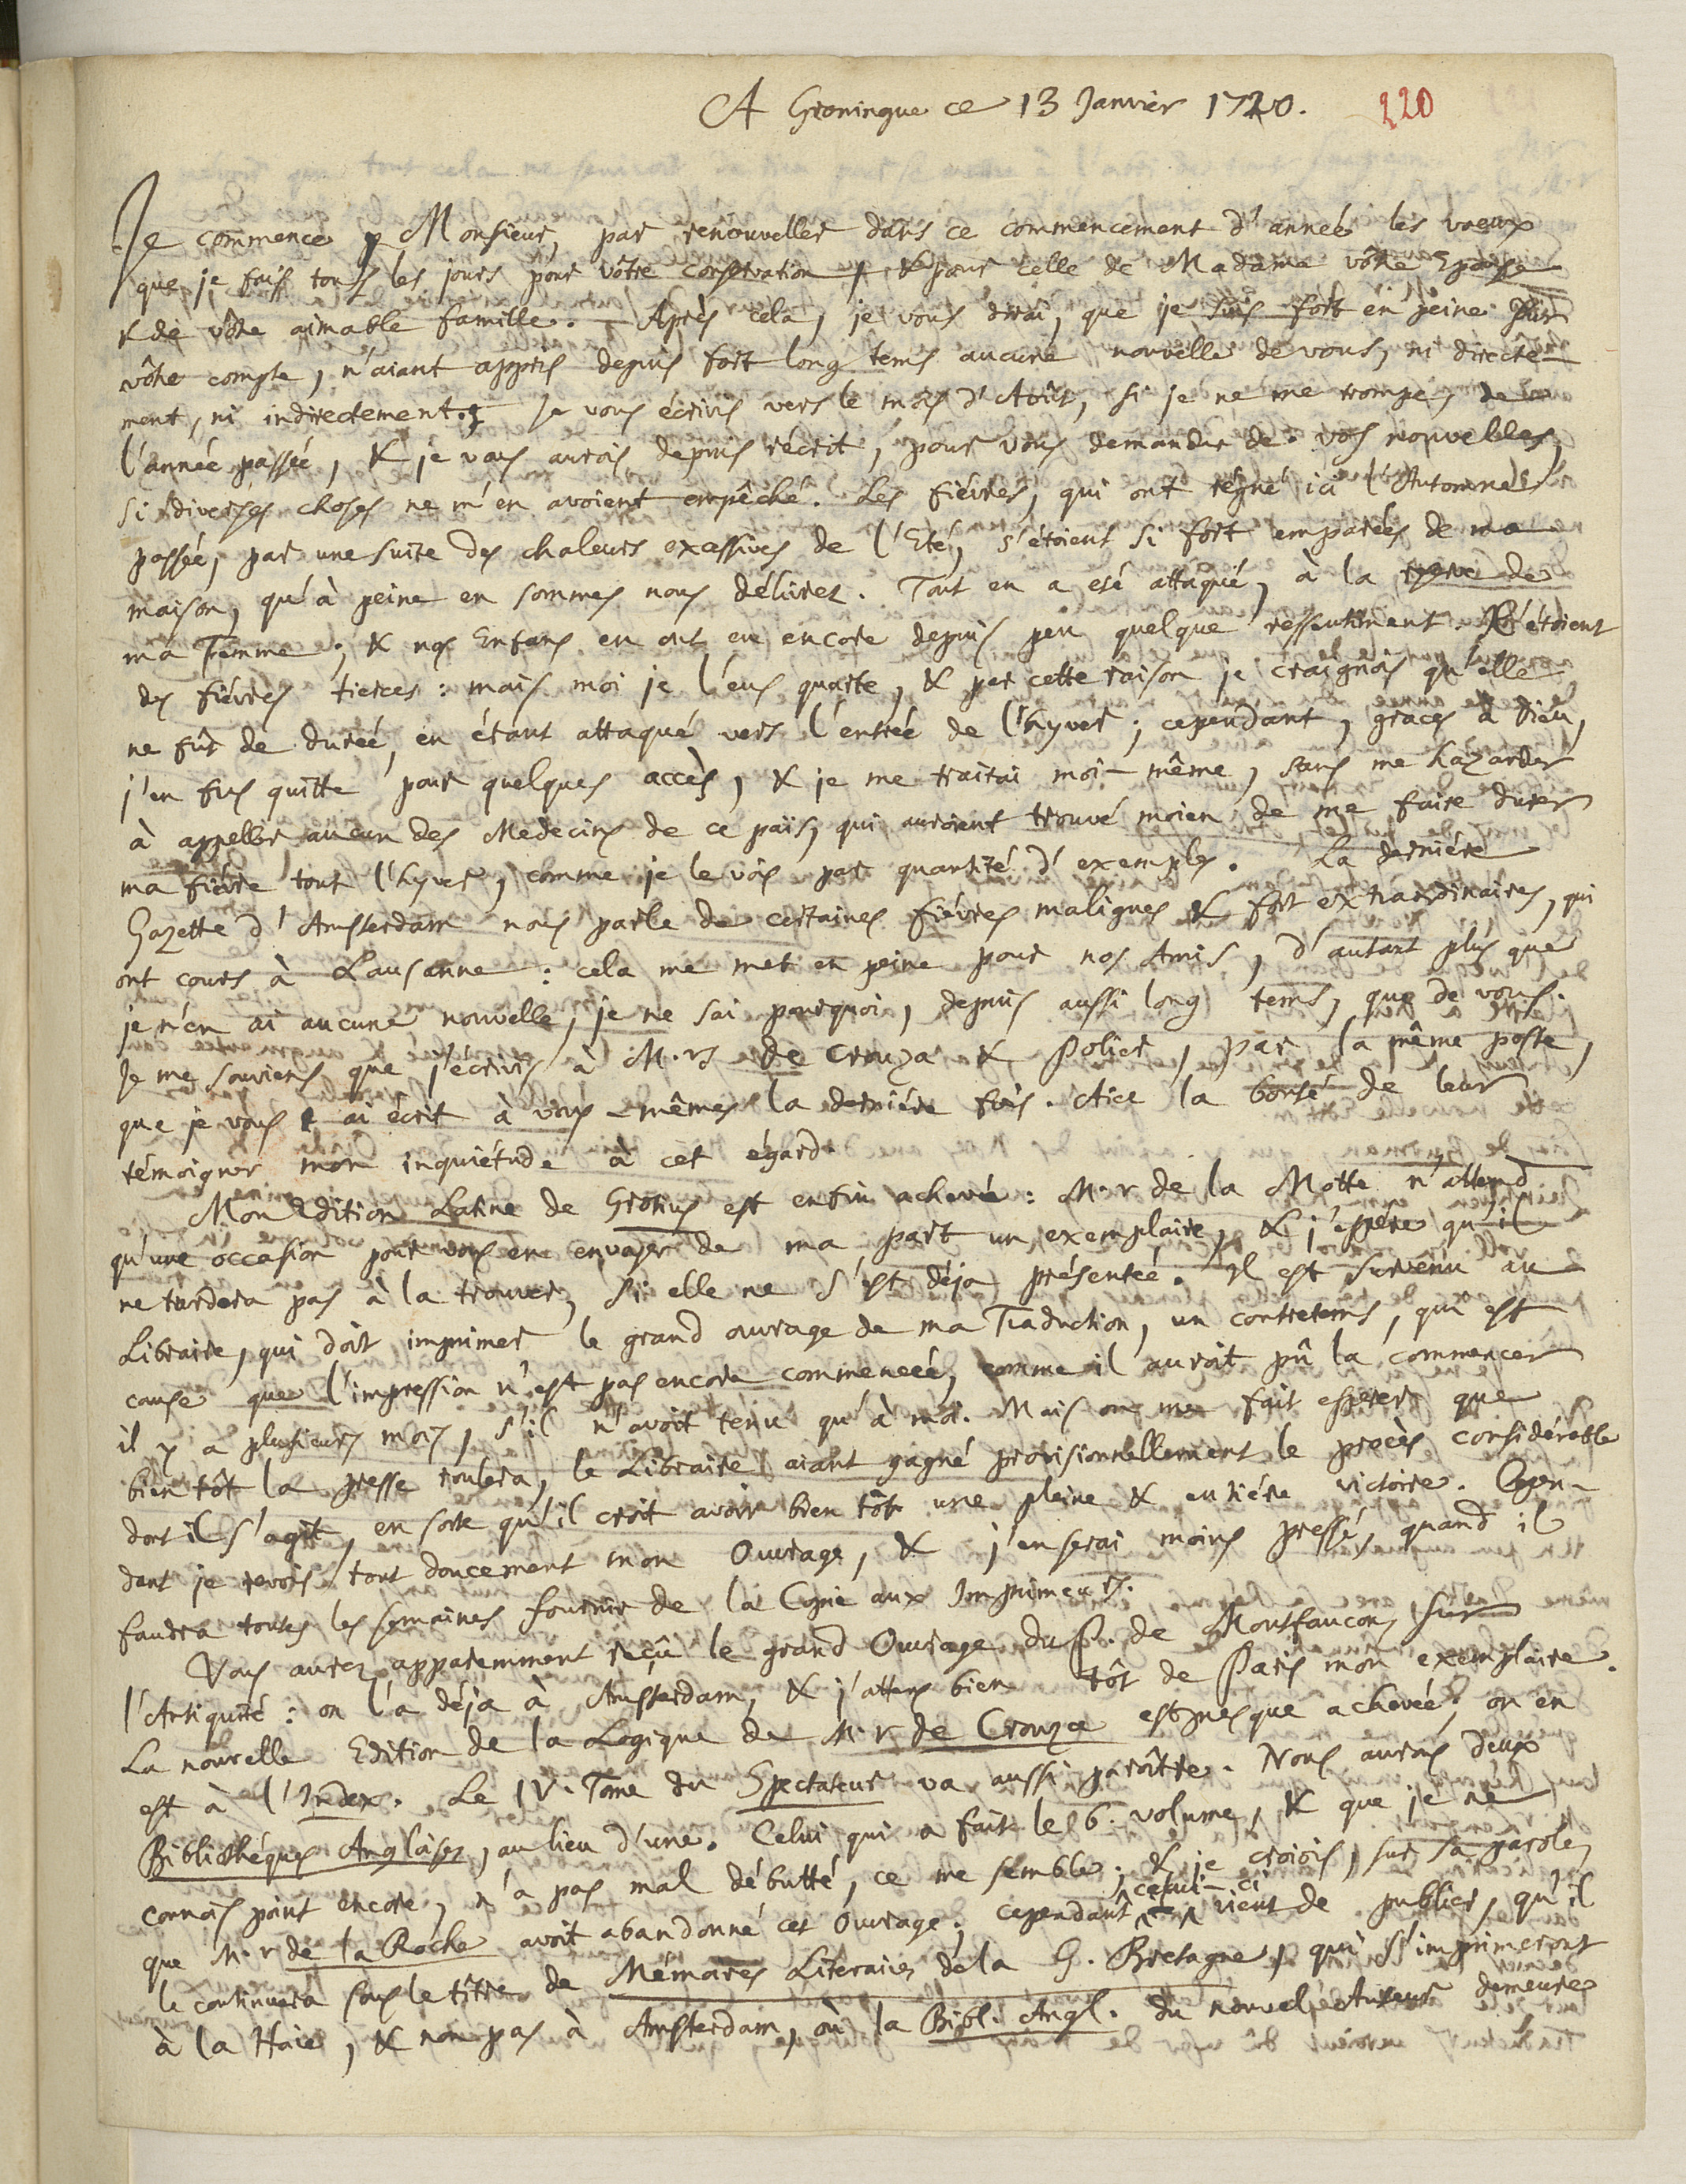 A Groningue ce 13 Janvier 1720. 220
Je commence, Monsieur, par renouveller dans ce commencement d'année les voeux
que je fais tous les jours pour vôtre conservation, & pour celle de Madame vôtre Epouse
& de vôtre aimable famille. Après cela, je vous dirai, que je suis fort en peine sur
vôtre compte, n'aiant appris depuis fort long tems aucune nouvelle de vous, ni directe-
ment, ni indirectement. Je vous écrivis vers le mois d'Août, si je ne me trompe, de
l'année passée, & je vous aurois depuis récrit, pour vous demander de vos nouvelles,
si diverses choses ne m'en avoient empêché. Les fiévres, qui ont régné ici l'Automne
passée, par une suite des chaleurs excessives de l'Eté, s'étoient si fort emparées de ma
maison, qu'à peine en sommes nous délivrez. Tout en a été attaqué, à la reserve de
ma Femme; & nos Enfans en ont eu encore depuis peu quelque ressentiment. C'étoient
des fiévres tierces: mais moi je l'eus quarte, & par cette raison je craignois qu'elle
ne fût de durée, en étant attaqué vers l'entrée de l'hyver; cependant, graces à Dieu,
j'en fus quitte pour quelques accès, & je me traitai moi-même, sans me hazarder
à appeller aucun des Medecins de ce païs, qui auroient trouvé moien de me faire durer
ma fiévre tout l'hyver, comme je le vois par quantité d'exemples. La derniére
Gazette d'Amsterdam nous parle de certaines fiévres malignes & fort extraordinaires, qui
ont cours à Lausanne: cela me met en peine pour nos Amis, d'autant plus que
je n'en ai aucune nouvelle, je ne sai pourquoi, depuis aussi long tems, que de vous.
Je me souviens que j'écrivis à M.rs de Crouza & Polier, par la même poste,
que je vous ai écrit à vous-mêmes la derniére fois. Aiez la bonté de leur
témoigner mon inquiétude à cet égard.
Mon Edition Latine de Grotius est enfin achevée: M.r de la Motte n'attend
qu'une occasion pour vous en envoyer de ma part un exemplaire, & j'espére qu'il
ne tardera pas à la trouver, si elle ne s'est déja présentée. Il est survenu au
Libraire, qui doit imprimer le grand ouvrage de ma Traduction, un contretems, qui est
cause que l'impression n'est pas encore commencée, comme il auroit pû la commencer
il y a plusieurs mois, s'il n'avoit tenu qu'à moi. Mais on me fait esperer que
bien tôt la presse roulera, le Libraire aiant gagné provisionnellement le procès considérable
dont il s'agit, en sorte qu'il croit avoir bien tôt une pleine & entiére victoire. Cepen-
dant je revois tout doucement mon Ouvrage, & j'en serai moins pressé, quand il
faudra toutes les semaines fournir de la Copie aux Imprimeurs.
Vous aurez apparemment reçû le grand Ouvrage du P. de Montfaucon, sur
l'Antiquité: on l'a déja à Amsterdam, & j'attens bien tôt de Paris mon exemplaire.
La nouvelle Edition de la Logique de M.r de Crouza est presque achevée; on en
est à l'Index. Le IV. Tome du Spectateur va aussi paroître. Nous aurons deux
Bibliothéques Angloises, au lieu d'une. Celui qui a fait le 6. volume, & que je ne
connois point encore, n'a pas mal débutté, ce me semble; & je croiois, sur sa parole,
que M.r de la Roche avoit abandonné cet Ouvrage; cependant celui-ci vient de publier, qu'il
le continuera sous le titre de Mémoires Literaires de la G. Bretagne, qui s'imprimeront
à la Haie, & non pas à Amsterdam, où la Bibl. Angl. du nouvel Auteur demeure